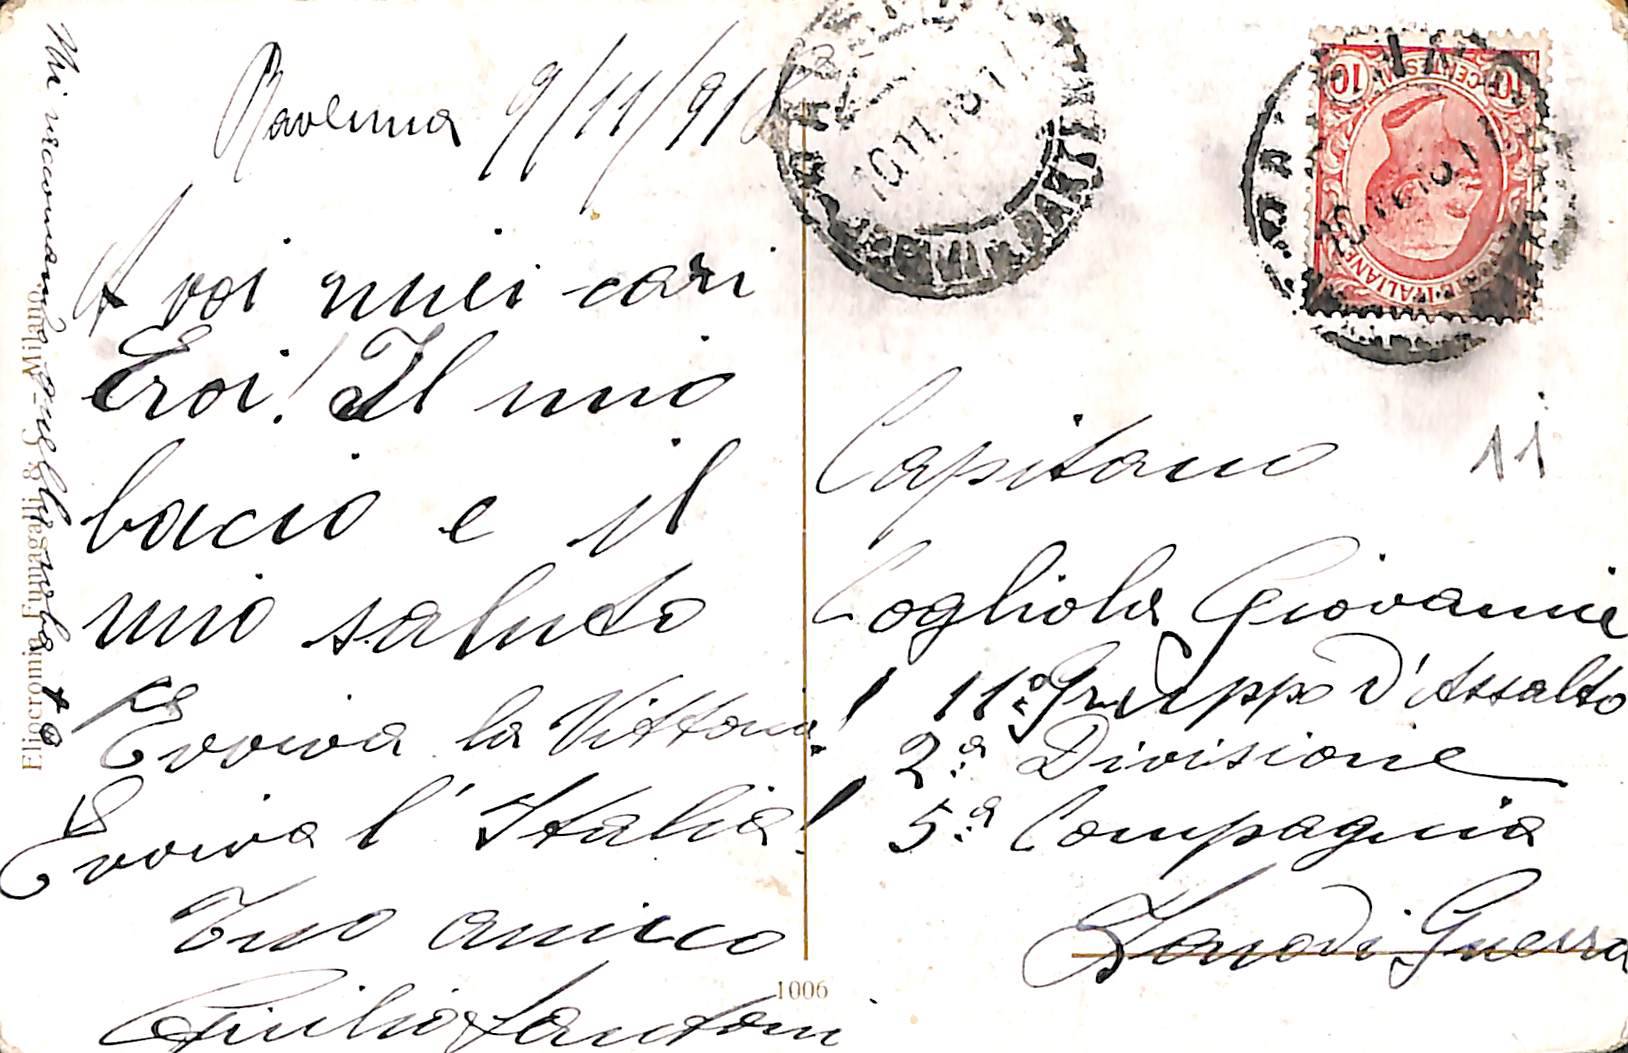 Ravenna 9/11/918
A voi miei cari
Eroi! Il mio
bacio e il
mio saluto
Evviva la Vittoria!
Evviva l'Italia!
Tuo amico
Giulio Santoni
Mi raccomando quella roba
Eliocromia Fumagalli & C. - Milano.
1006
10 CENTESIMI 10
POSTE ITALIANE
10.11.18
PARTENZA
11
Capitano
Cogliola Giovanni
11º Gruppo d'Assalto
2.ª Divisione
5.ª Compagnia
Zona di Guerra